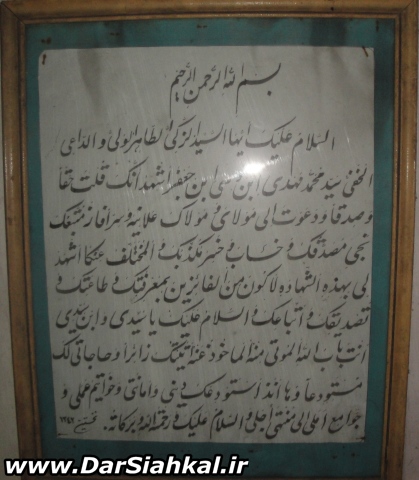 بسم الله الرحمن الرحیم
السلام علیک ایها السید الزکی الطاهر الولی و الداعی
الحفی سید محمد مهدی ابن موسی ابن جعفر اشهد انک قلت حقا
و صدقا و دعوت الی مولای و مولاک علانیة و سرا فاز متبعک
نجی مصدقک و خاب و خسر مکذبک و المختلف عنک اشهد
لی بهذه الشهاده لاکون من الفائزین بمعرفتک و طاعتک و
تصدیقک و اتباعک و السلام علیک یا سیدی و ابن سیدی
انت باب الله الموتی منه الماخوذ عنه اتیتک زائرا و حاجاتی لک
مستودعا و ها انذا استودعک دینی و امانتی و خواتیم عملی و
جوامع املی الی منتهی اجلی و السلام علیک و رحمة الله و برکاته.
www.DarSiahkal.ir